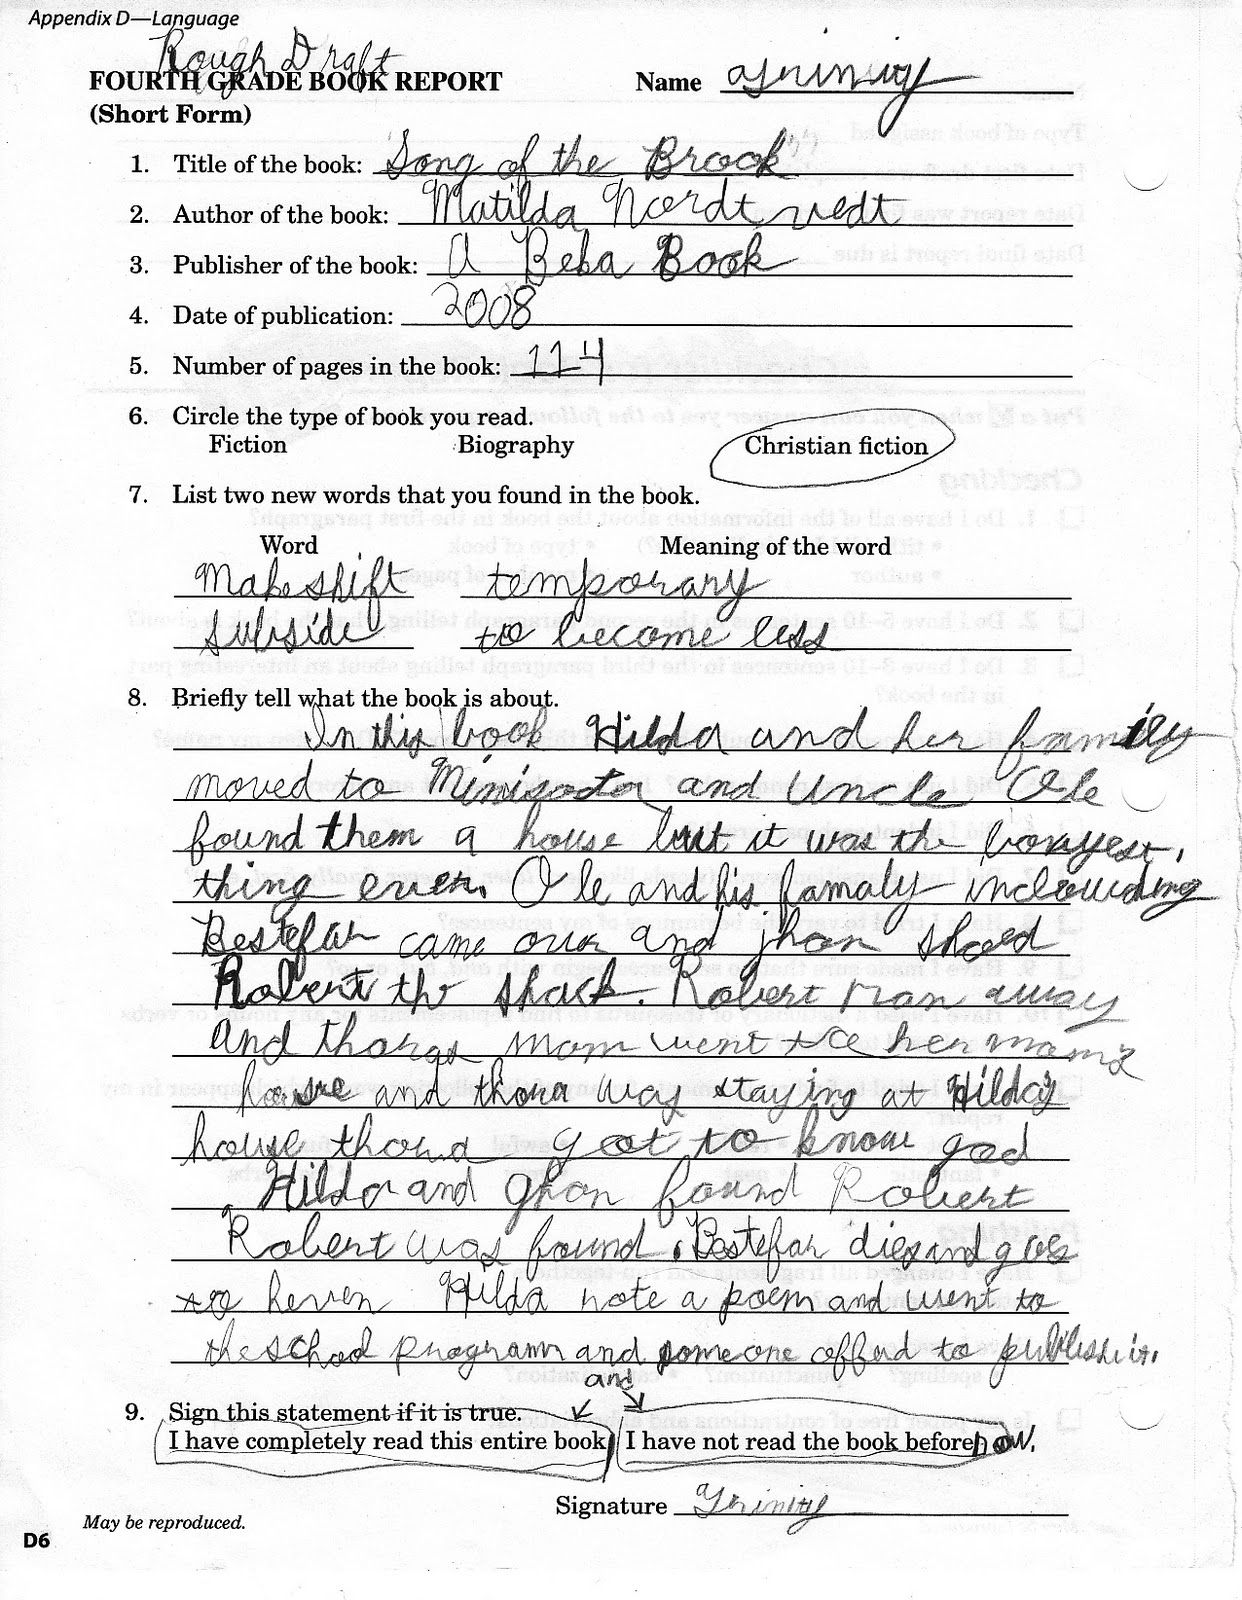 Appendix D—Language
Rough Draft
FOURTH GRADE BOOK REPORT Name Trinity
(Short Form)
1. Title of the book: Song of the Brook
2. Author of the book: Matilda Nordtvedt
3. Publisher of the book: A Beka Book
4. Date of publication: 2008
5. Number of pages in the book: 114
6. Circle the type of book you read.
Fiction Biography Christian fiction
7. List two new words that you found in the book.
Word Meaning of the word
Makeshift temporary
subside to become less
8. Briefly tell what the book is about.
In this book Hilda and her family
moved to Minisota and Uncle Ole
found them a house but it was the
thing ever. Ole and his famaly inclouding
Bestefar came over and jhon shoed
Robert the shack. Robert ran away
and thoras mom went to her moms
house and thora was staying at Hilda's
house thora got to know god
Hilda and Jhon found Robert
Robert was found. Bestefar dies and goes
to heven Hilda rote a poem and went to
the school program and someone afferd to publish it.
and
9. Sign this statement if it is true.
I have completely read this entire book I have not read the book before now.
Signature Trinity
May be reproduced.
D6